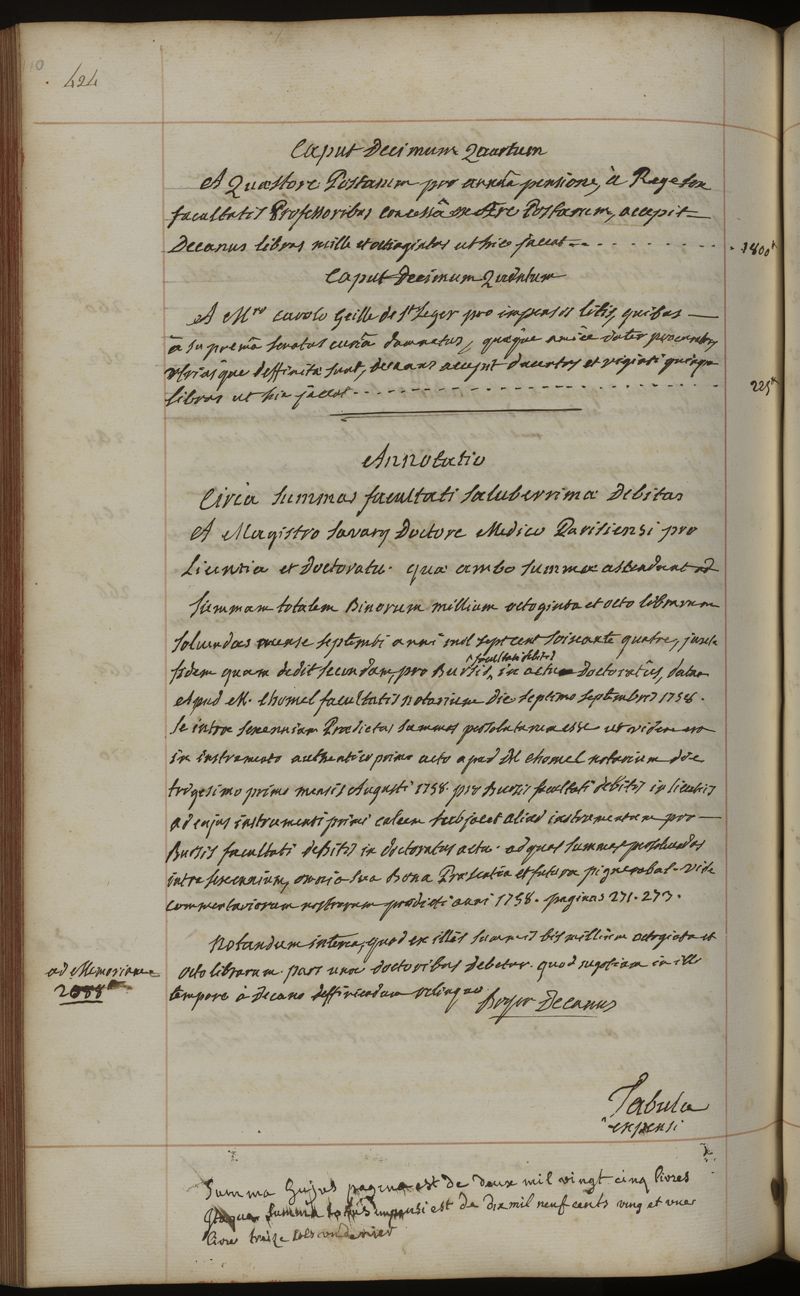 424
Caput Decimum Quartum
A Quæstore Postarum pro annuâ pensione, à Rege
facultatis Professoribus concessâ ex Ære Postarum, accepit
Decanus libras mille et octingintas ut hic jacet 1800
Caput Decimum Quintum
A Mro Carolo Geille de St Leger pro impensis litis, quibus
à supremâ senatus curiâ damnatus, quæque amicè inter
que deffinitæ sunt, decanus accepit ducentas et viginti quinque
libras ut hic jacet 225
Annotatio
Circa summas facultati saluberrimæ Debitas
A Magistro Savary Doctore Medico Parisiensi pro
Licentia et Doctoratu. quæ ambo summæ ascendunt ad
summam totalem Binorum millium octoginta et octo librarum
solvendas mense septembi anni mil sept cent soixante quatre, juxta
fidem quam dedit secundam, pro Bursis facultati debitis in actu Doctoratûs, datam
apud M. Chomel facultatis notarium die septimo septembris 1758.
se intra sexennium Prædictas summas persoluturum esse ut videre est
in instrumento authentico primo acto apud M Chomel notarium die
trigesimo primo mensis Augusti 1758 pro Bursis facultati debitis in licentiis
ad cujus instrumenti primi calcem subjacet aliud instrumentum pro
Bursis facultati deBitis in doctoratus actu. ad quas summas persolvendas
intra sexennium, omnia sua Bona Præsentia et futura pignerabat. vide
commentariorum nostrorum prædicti anni 1758. paginas 271. 273.
Notandum interea, quod ex illis summis bis millium octoginta et
octo librarum. pars una doctoribus debetur. quod negotium in illo
tempore à Decano deffiniendum relinquo
ad Memoriam
2088
Boyer Decanus
Tabula
expensi
Summa hujus paginæ est de deux mil vingt cinq livres
summa totius est de dix mil neuf cents ving et une
livre traize sols un denier